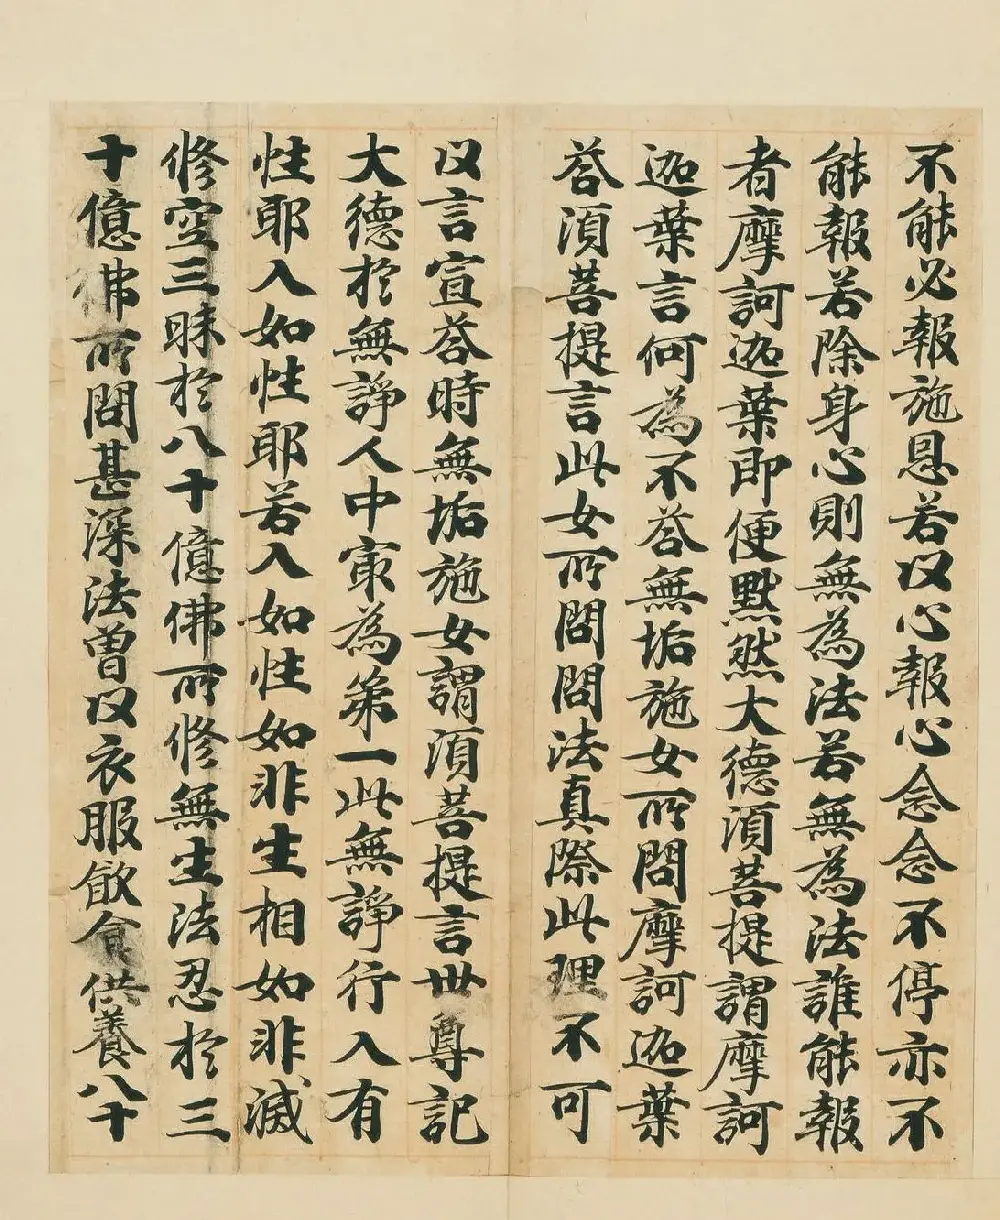 不能必報施恩若以心報心念念不停亦不
能報若除身心則無為法若無為法誰能報
者摩訶迦葉即便默然大德須菩提謂摩訶
迦葉言何為不荅無垢施女所問摩訶迦葉
荅須菩提言此女所問問法真際此理不可
以言宣荅時無垢施女謂須菩提言世尊記
大德於無諍人中㝡為第一此無諍行入有
性耶入如性耶若入如性如非生相如非滅
修空三昧於八十億佛所修無生法忍於三
十億佛所問甚深法曾以衣服飲食供養八十